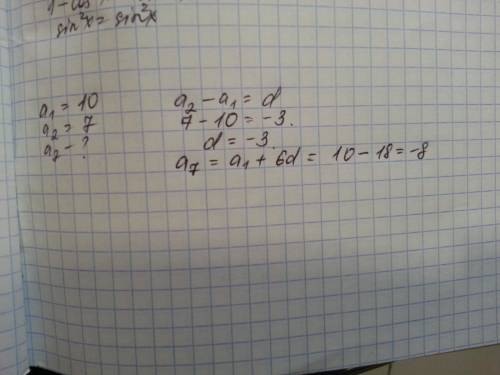 1 - cos
sin²x = sin²x
a₁ = 10
a₂ = 7
a₇ - ?
a₂ - a₁ = d
7 - 10 = -3.
d = -3.
a₇ = a₁ + 6d = 10 - 18 = -8